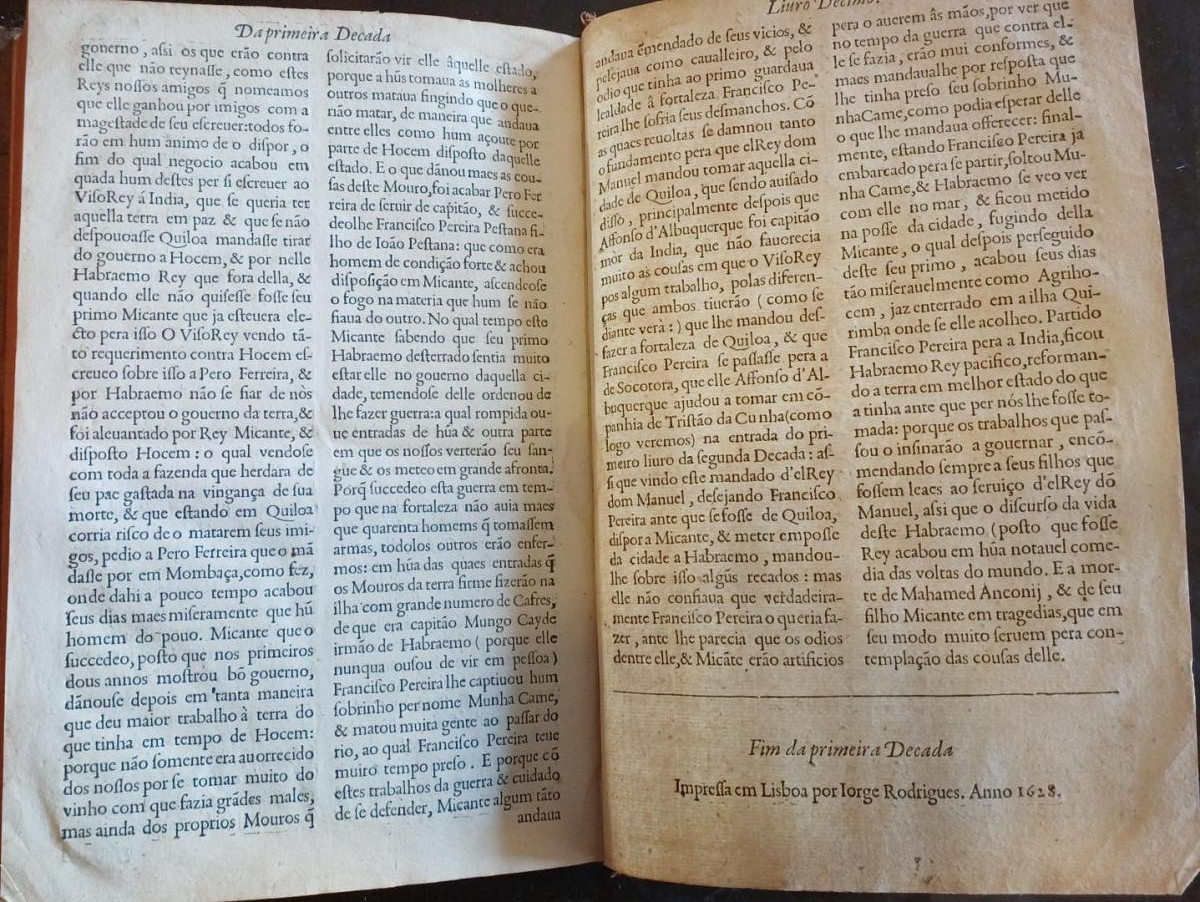 Da primeira Decada
gouerno, aſsi os que erão contra
elle que não reynaſſe, como eſtes
Reys noſſos amigos q̃ nomeamos
que elle ganhou por imigos com a
mageſtade de ſeu eſcreuer: todos fo-
rão em hum ánimo de o diſpor, o
fim do qual negocio acabou em
quada hum deſtes per ſi eſcreuer ao
ViſoRey á India, que ſe queria ter
aquella terra em paz & que ſe não
deſpouoaſſe Quiloa mandaſſe tirar
do gouerno a Hocem, & por nelle
Habraemo Rey que fora della, &
quando elle não quiſeſſe foſſe ſeu
primo Micante que ja eſteuera ele-
cto pera iſſo O ViſoRey vendo tã-
to requerimento contra Hocem eſ-
creueo ſobre iſſo a Pero Ferreira, &
por Habraemo não ſe fiar de nòs
não acceptou o gouerno da terra, &
foi aleuantado por Rey Micante, &
diſpoſto Hocem: o qual vendoſe
com toda a fazenda que herdara de
ſeu pae gaſtada na vingança de ſua
morte, & que eſtando em Quiloa
corria riſco de o matarem ſeus imi-
gos, pedio a Pero Ferreira que o mã
daſſe por em Mombaça, como fez,
onde dahi a pouco tempo acabou
ſeus dias maes miſeramente que hũ
homem do pouo. Micante que o
ſuccedeo, poſto que nos primeiros
dous annos moſtrou bõ gouerno,
dãnouſe depois em tanta maneira
que deu maior trabalho à terra do
que tinha em tempo de Hocem:
porque não ſomente era auorrecido
dos noſſos por ſe tomar muito do
vinho com que fazia grãdes males,
mas ainda dos proprios Mouros q̃
ſolicitarão vir elle âquelle eſtado,
porque a hũs tomaua as molheres a
outros mataua fingindo que o que-
não matar, de maneira que andaua
entre elles como hum açoute por
parte de Hocem diſpoſto daquelle
eſtado. E o que dánou maes as cou-
ſas deſte Mouro, foi acabar Pero Fer
reira de ſeruir de capitão, & ſucce-
deolhe Franciſco Pereira Peſtana fi-
lho de Ioão Peſtana: que como era
homem de condição forte & achou
diſpoſição em Micante, aſcendeoſe
o fogo na materia que hum ſe não
fiaua do outro. No qual tempo eſte
Micante ſabendo que ſeu primo
Habraemo deſterrado ſentia muito
eſtar elle no gouerno daquella ci-
dade, temendoſe delle ordenou de
lhe fazer guerra: a qual rompida ou-
ue entradas de hũa & outra parte
em que os noſſos verterão ſeu ſan-
gue & os meteo em grande afronta.
Porq̃ ſuccedeo eſta guerra em tem-
po que na fortaleza não auia maes
que quarenta homems q̃ tomaſſem
armas, todolos outros erão enfer-
mos: em hũa das quaes entradas q̃
os Mouros da terra firme fizerão na
ilha com grande numero de Cafres,
de que era capitão Mungo Cayde
irmão de Habraemo (porque elle
nunqua ouſou de vir em peſſoa)
Franciſco Pereira lhe captiuou hum
ſobrinho per nome Munha Came,
& matou muita gente ao paſſar do
rio, ao qual Franciſco Pereira teue
muito tempo preſo. E porque cõ
eſtes trabalhos da guerra & cuidado
de ſe defender, Micante algum tãto
andaua
Liuro Decimo.
andaua ẽmendado de ſeus vicios, &
pelejaua como caualleiro, & pelo
odio que tinha ao primo guardaua
lealdade â fortaleza. Franciſco Pe-
reira lhe ſofria ſeus deſmanchos. Cõ
as quaes reuoltas ſe damnou tanto
o fundamento pera que elRey dom
Manuel mandou tomar aquella ci-
dade de Quiloa, que ſendo auiſado
diſſo, principalmente deſpois que
Affonſo d'Albuquerque foi capitão
mòr da India, que não fauorecia
muito as couſas em que o ViſoRey
pos algum trabalho, polas diferen-
ças que ambos tiuerão (como ſe
diante verà:) que lhe mandou deſ-
fazer a fortaleza de Quiloa, & que
Franciſco Pereira ſe paſſaſſe pera a
de Socotora, que elle Affonſo d'Al-
buquerque ajudou a tomar em cõ-
panhia de Triſtão da Cunha (como
logo veremos) na entrada do pri-
meiro liuro da ſegunda Decada: aſ-
ſi que vindo eſte mandado d'elRey
dom Manuel, deſejando Franciſco
Pereira ante que ſe foſſe de Quiloa,
diſpor a Micante, & meter em poſſe
da cidade a Habraemo, mandou-
lhe ſobre iſſo algũs recados: mas
elle não confiaua que verdadeira-
mente Franciſco Pereira o queria fa-
zer, ante lhe parecia que os odios
dentre elle, & Micãte erão artificios
pera o auerem âs mãos, por ver que
no tempo da guerra que contra el-
le ſe fazia, erão mui conformes, &
maes mandaualhe por reſpoſta que
lhe tinha preſo ſeu ſobrinho Mu-
nha Came, como podia eſperar delle
o que lhe mandaua offerecer: final-
mente, eſtando Franciſco Pereira ja
embarcado pera ſe partir, ſoltou Mu-
nha Came, & Habraemo ſe veo ver
com elle no mar, & ficou metido
na poſſe da cidade, fugindo della
Micante, o qual deſpois perſeguido
deſte ſeu primo, acabou ſeus dias
tão miſerauelmente como Agriho-
cem, jaz enterrado em a ilha Qui-
rimba onde ſe elle acolheo. Partido
Franciſco Pereira pera a India, ficou
Habraemo Rey pacifico, reforman-
do a terra em melhor eſtado do que
a tinha ante que per nós lhe foſſe to-
mada: porque os trabalhos que paſ-
ſou o inſinarão a gouernar, encõ-
mendando ſempre a ſeus filhos que
foſſem leaes ao ſeruiço d'elRey dõ
Manuel, aſsi que o diſcurſo da vida
deſte Habraemo (poſto que foſſe
Rey acabou em hũa notauel come-
dia das voltas do mundo. E a mor-
te de Mahamed Anconij, & de ſeu
filho Micante em tragedias, que em
ſeu modo muito ſeruem pera con-
templação das couſas delle.
Fim da primeira Decada
Impreſſa em Lisboa por Iorge Rodrigues. Anno 1628.